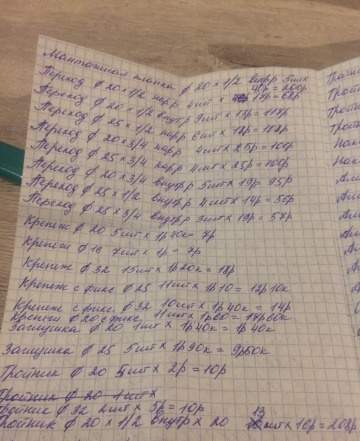 Монтажная планка ф 20 х 1/2 внутр 5шт
Переход ф 20 х 1/2 нар 4шт х 17р = 68р
Переход ф 20 х 1/2 внутр 9шт х 13р = 117р
Переход ф 25 х 1/2 нар 6шт х
Переход ф 20 х 3/4 нар 4шт х 25р = 100р
Переход ф 25 х 3/4 нар 4шт х 25р = 100р
Переход ф 20 х 3/4 внутр 5шт х 19р 95р
Переход ф 25 х 1/2 внутр 4шт х 14р = 56р
Переход ф 25 х 3/4 внутр 3шт х 19р = 57р
Крепеж ф 20 5шт х 1р40к = 7р
Крепеж ф 16 7шт х 1р = 7р
Крепеж ф 32 15шт х 1р20к = 18р
Крепеж с фикс ф 25 11шт х 1р10 = 12р10к
Крепеж с фикс. ф 32 10шт х 1р40к = 14р
Крепеж ф 20 с фикс 11шт х
Заглушка ф 20 1шт х 1р40к = 1р40к
Заглушка ф 25 5шт х 1р90к = 9р50к
Тройник ф 20 х 2р = 10р
Тройник ф 20 1шт х
Тройник ф 32 2шт х 5р = 10р
Тройник ф 20 х 1/2 внутр х 20 13 шт х 16р = 208р